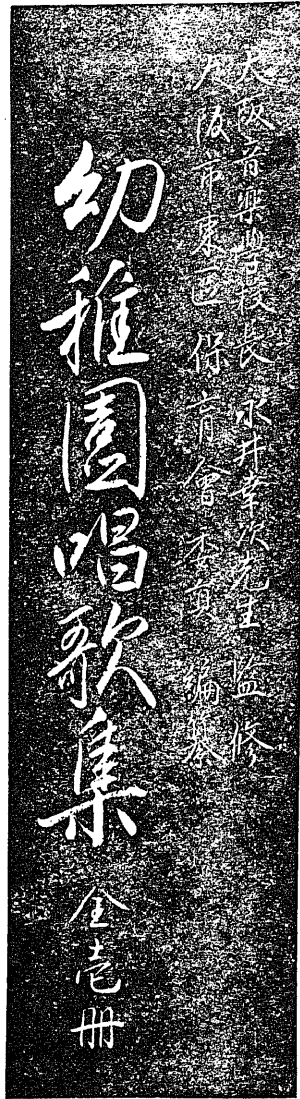 大阪音楽學校長 永井幸次先生 監修
大阪市東區保育會委員 編纂
幼稚園唱歌集 全壱冊